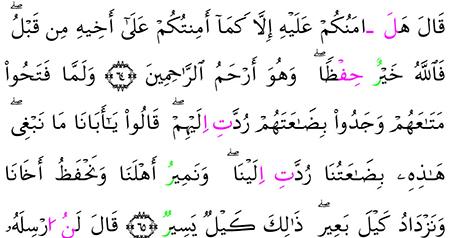 قَالَ هَلَ ـامَنُكُمْ عَلَيْهِ إِلَّا كَمَآ أَمِنتُكُمْ عَلَىٰٓ أَخِيهِ مِن قَبْلُۖ
فَاللَّهُ خَيْرٌ حِفْظًاۖ وَهُوَ أَرْحَمُ الرَّٰحِمِينَ ٦٤ وَلَمَّا فَتَحُواْ
مَتَٰعَهُمْ وَجَدُواْ بِضَٰعَتَهُمْ رُدَّتِ اِلَيْهِمْۖ قَالُواْ يَٰٓأَبَانَا مَا نَبْغِيۖ
هَٰذِهِۦ بِضَٰعَتُنَا رُدَّتِ اِلَيْنَاۖ وَنَمِيرُ أَهْلَنَا وَنَحْفَظُ أَخَانَا
وَنَزْدَادُ كَيْلَ بَعِيرٖۖ ذَٰلِكَ كَيْلٌ يَسِيرٌ ٦٥ قَالَ لَنُ ا۟رْسِلَهُۥ